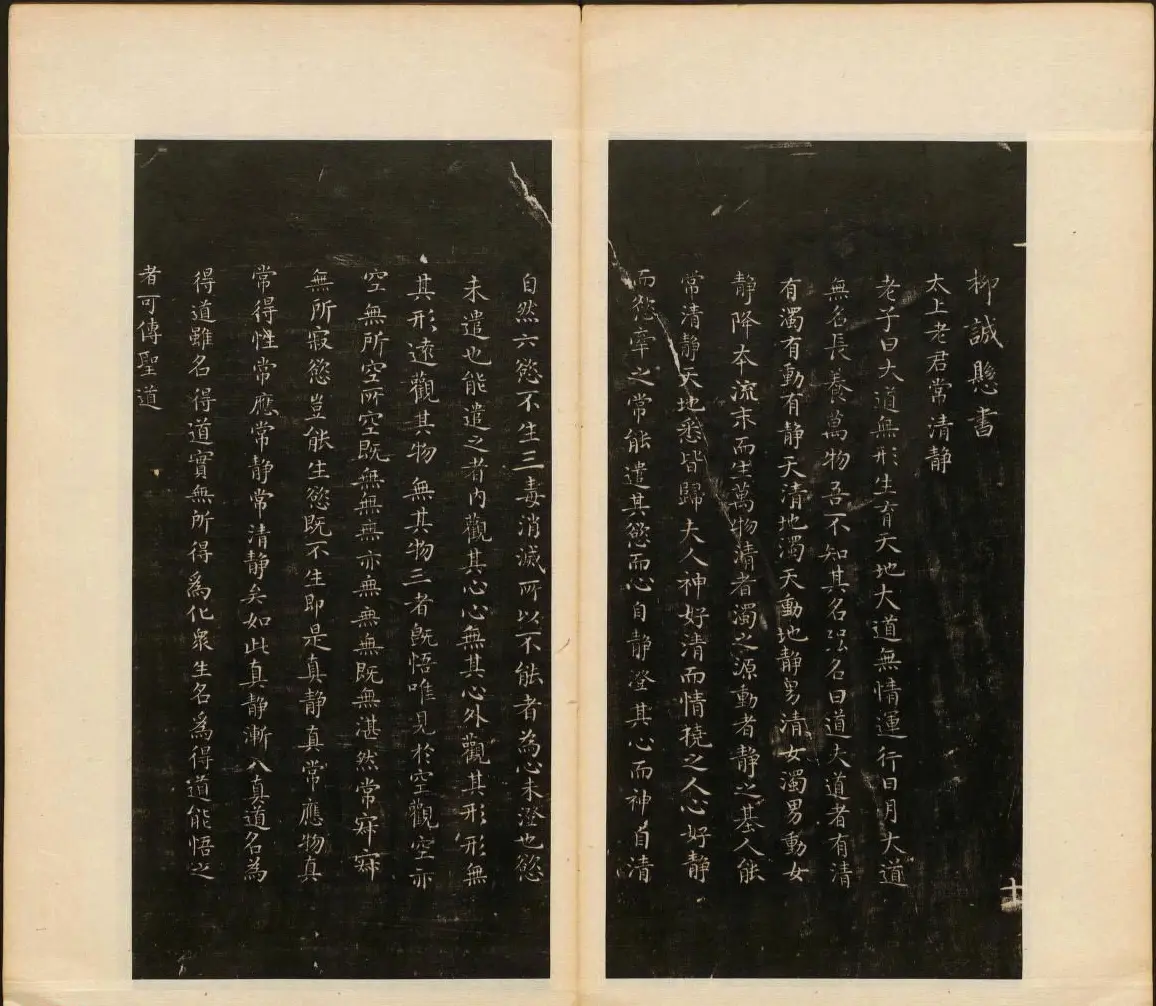 柳誠懸書
太上老君常清静
老子曰大道無形生育天地大道無情運行日月大道
無名長養萬物吾不知其名强名曰道夫道者有清
有濁有動有静天清地濁天動地静男清女濁男動女
静降本流末而生萬物清者濁之源動者静之基人能
常清静天地悉皆歸夫人神好清而情撓之人心好静
而慾牽之常能遣其慾而心自静澄其心而神自清
自然六慾不生三毒消滅所以不能者為心未澄也慾
未遣也能遣之者內觀其心心無其心外觀其形形無
其形遠觀其物無其物三者既悟唯見於空觀空亦
空無所空所空既無無無亦無無無既無湛然常寂寂
無所寂慾豈能生慾既不生即是真静真常應物真
常得性常應常静常清静矣如此真静漸入真道名為
得道雖名得道實無所得為化衆生名為得道能悟之
者可傳聖道